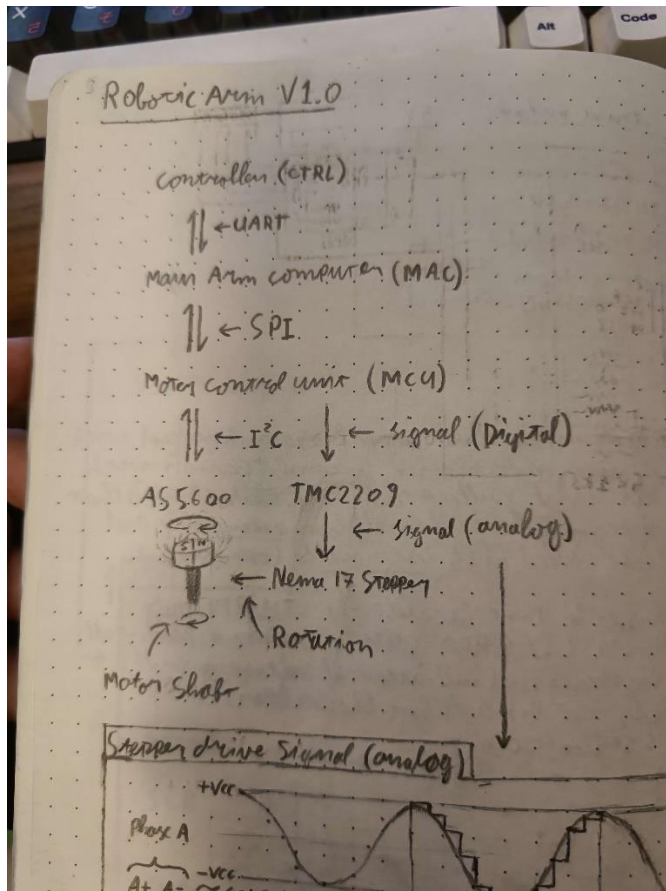 Alt
Code
Robotic Arm V1.0
Controller (CTRL)
←UART
Main Arm computer (MAC)
← SPI
Motor control unit (MCU)
← I²C
← signal (Digital)
AS5600
TMC2209
← signal (analog)
S N
← Nema 17 Stepper
Rotation
Motor Shaft
Stepper drive signal (analog)
+Vcc
Phase A
-Vcc
A+ A-